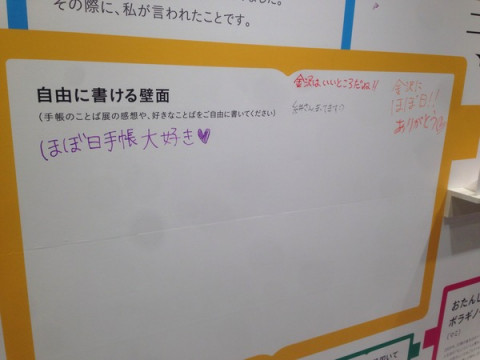 その際に、私が言われたことです。
自由に書ける壁面
(手帳のことば展の感想や、好きなことばをご自由に書いてください)
ほぼ日手帳大好き♥
金沢はいいところだね!!
金沢に
ほぼ日!!
ありがとう
おたんじ
ボラギノ